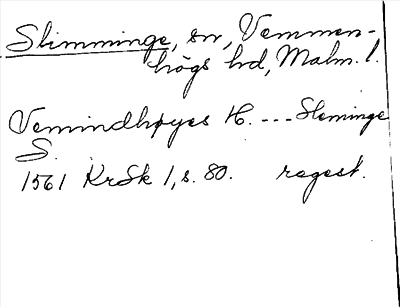 Slimminge, sn, Vemmen-
högs hd, Malm. l.
Vemindhøyes H. --- Sleminge
S.
1561 KrSk 1, s. 80. regest.